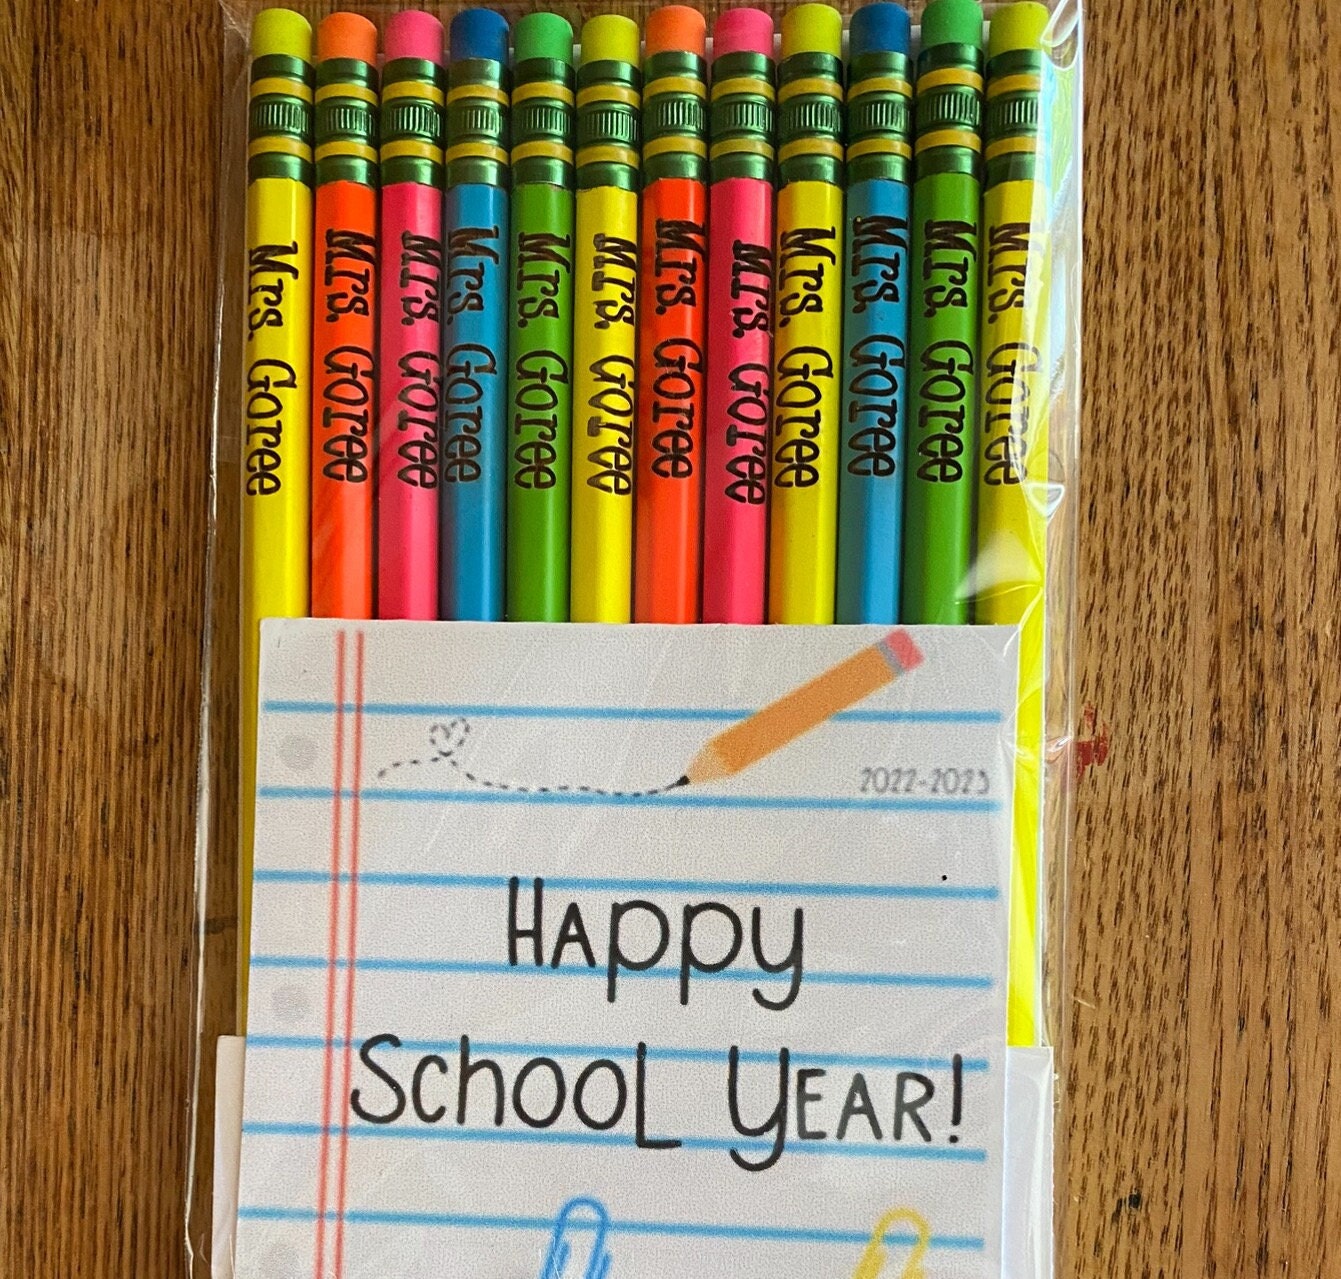 Mrs. Goree
Mrs. Goree
Mrs. Goree
Mrs. Goree
Mrs. Goree
Mrs. Goree
Mrs. Goree
Mrs. Goree
Mrs. Goree
Mrs. Goree
Mrs. Goree
Mrs. Goree
2022-2023
Happy
School Year!